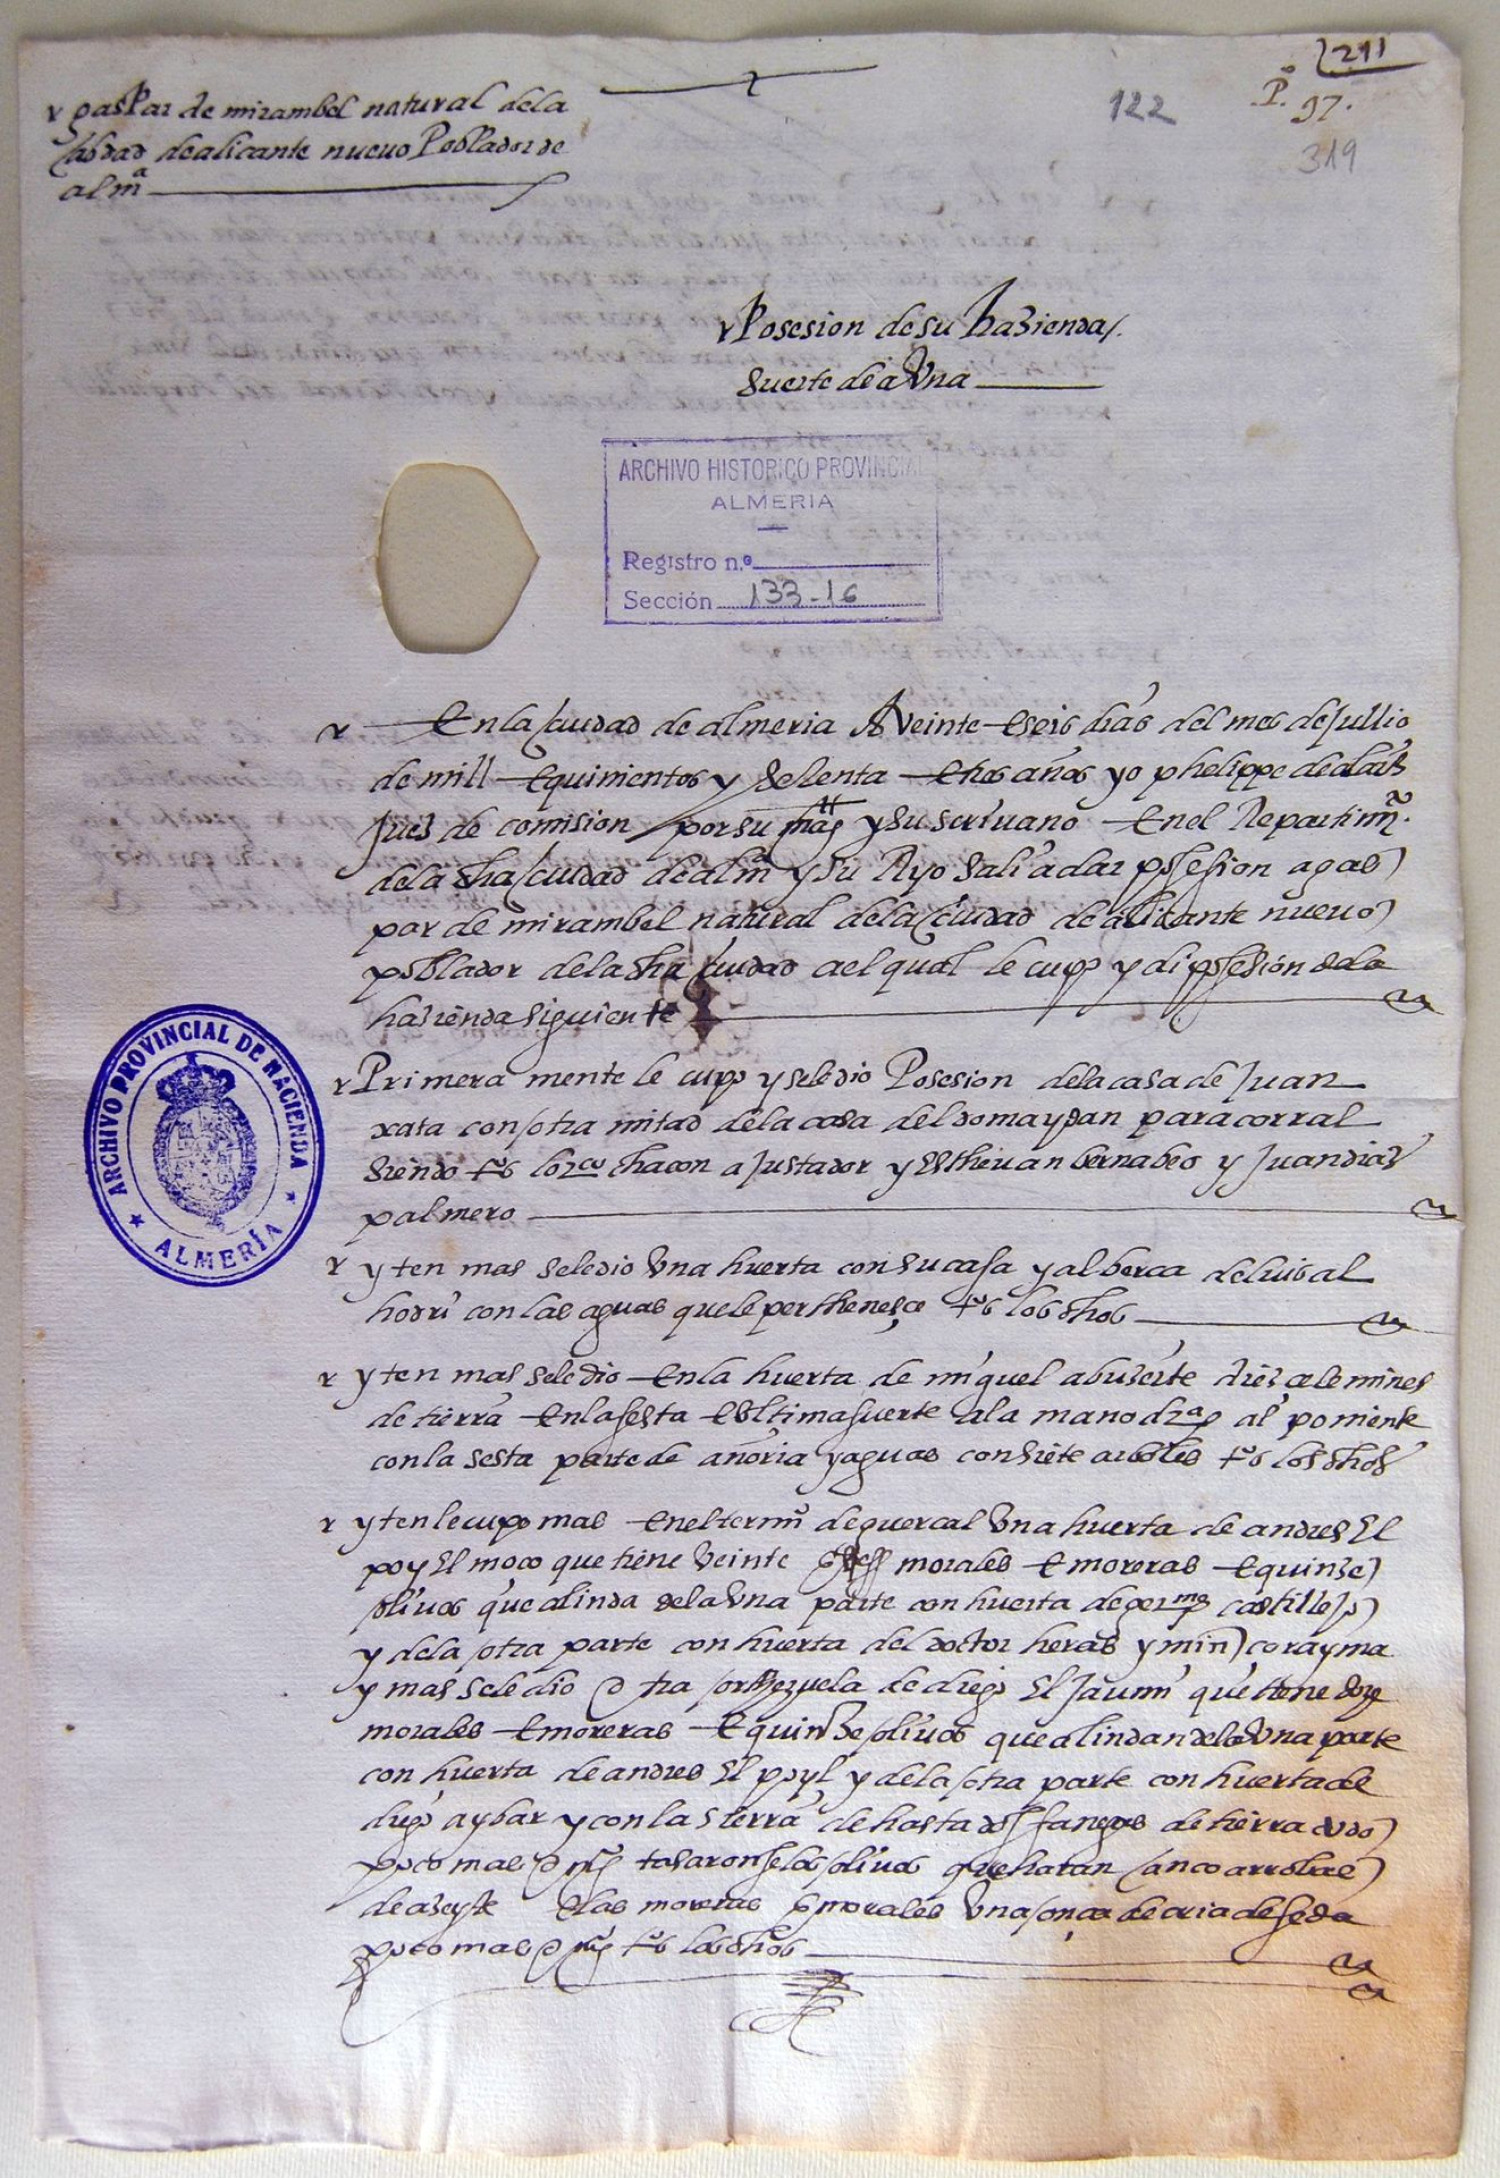 gaspar de mirambel natural dela
cibdad de alicante nuevo Poblador de
almª
211
P.º 97.
122
319
Posesion de su hazienda
suerte de a Una
ARCHIVO HISTORICO PROVINCIAL
ALMERIA
Registro n.º
Sección 133-16
En la ciudad de almeria A Veinte E seis dias del mes de Jullio
de mill E quinientos y setenta E tres años yo phelippe de alaís
Juez de comision por su magt y su scrivano En el Repartimº
dela dha ciudad de almª y su Ryo Salí a dar posesion a gas
par de mirambel natural dela ciudad de alicante nuevo
poblador dela dha ciudad a el qual le cupo y di posesion dela
hazienda siguiente
Primera mente le cupo y se le dio Posesion dela casa de Juan
xata con otra mitad dela casa del domaydan para corral
siendo tºs lorºço chacon ajustador y Esthevan bernabeo y Juan diaz
palmero
yten mas se le dio Una huerta con su casa y alberca de luis al
hodrí con las aguas que le perthenesçe tºs los dhos
yten mas se le dio En la huerta de miguel abuzeite diez celemines
de tierra En la sesta E Ultima suerte a la mano drª al poniente
con la sesta parte de añoria y aguas con siete arboles tºs los dhos
yten le cupo mas En el termº de guercal Una huerta de andres El
poy El moço que tiene Veinte morales E moreras E quinze
olivos que alinda dela Una parte con huerta de germº castillejo
y dela otra parte con huerta del doctor heras y min corayma
y mas se le dio otra ortezuela de diego El Jauní que tiene doze
morales E moreras E quinze olivos que alindan dela Una parte
con huerta de andres El poyl y dela otra parte con huerta de
diego aybar y con la sierra de hasta dos fanegas de tierra
poco mas o ms tasaronse los olivos que haran cinco arrobas
de azeyte E las moreras E morales Una onça de cria de seda
poco mas o ms tºs los dhos
ARCHIVO PROVINCIAL DE HACIENDA
ALMERÍA